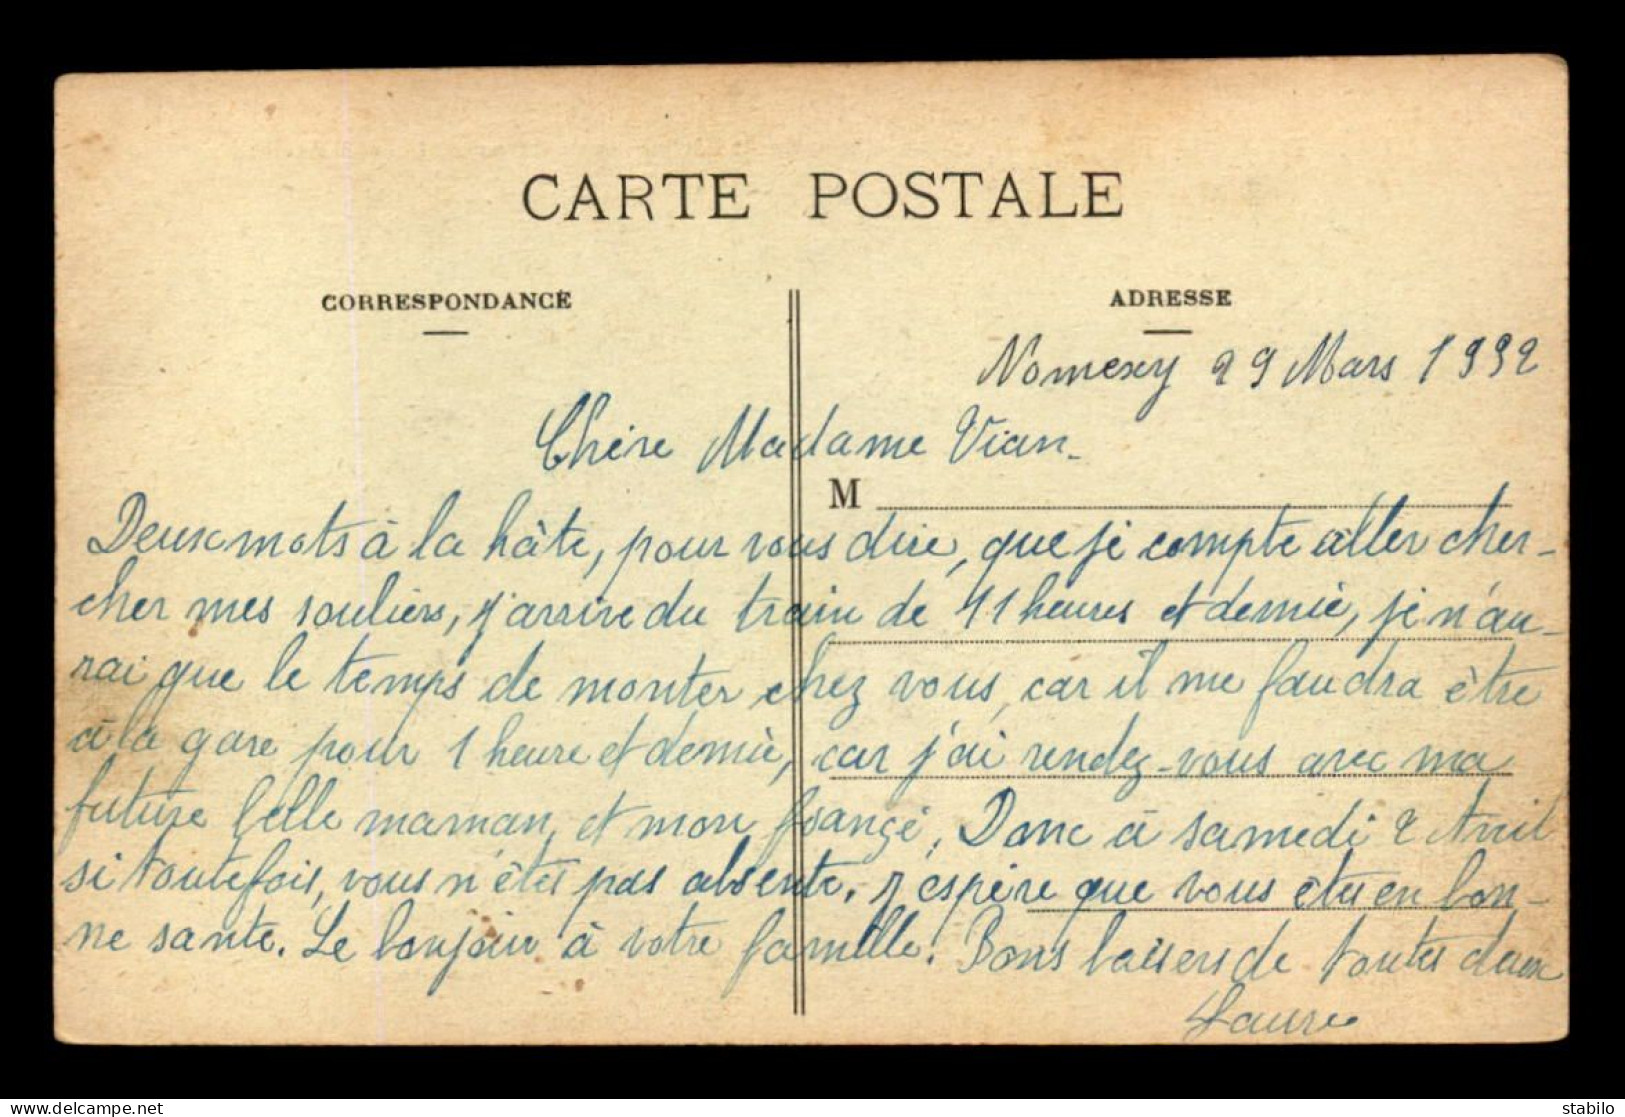 CARTE POSTALE
CORRESPONDANCE
ADRESSE
Nomexy 29 Mars 1932
Chère Madame Vian.
M
Deux mots à la hâte, pour vous dire, que je compte aller cher-
cher mes souliers, j'arrive du train de 11 heures et demie, je n'au-
rai que le temps de monter chez vous, car il me faudra être
à la gare pour 1 heure et demie, car j'ai rendez-vous avec ma
future belle maman, et mon fiancé, Donc à samedi 2 Avril
si toutefois, vous n'êtes pas absente. J'espère que vous êtes en bon-
ne santé. Le bonjour à votre famille. Bons baisers de toutes deux
Laure
delcampe.net
stabilo